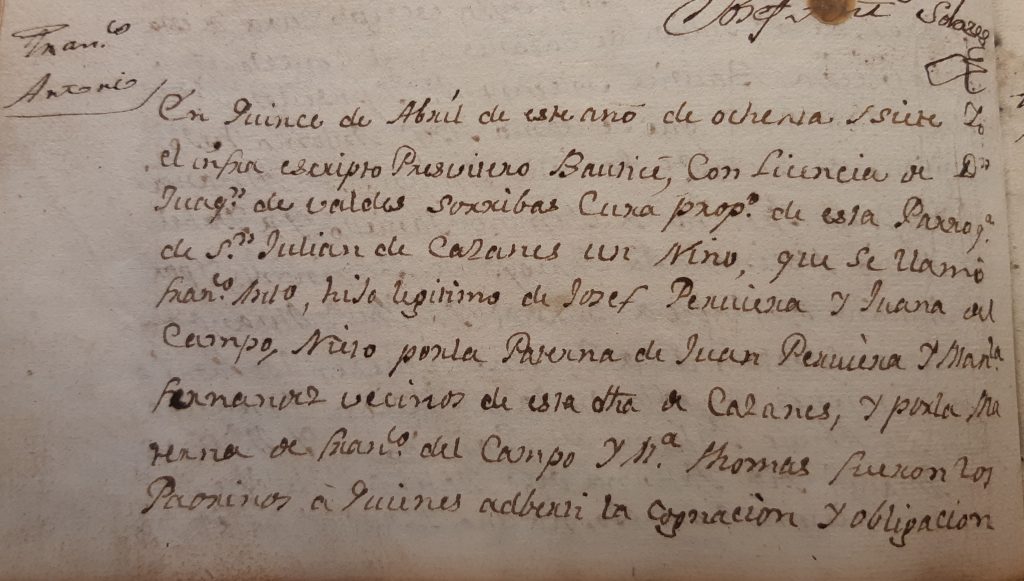 Solares
Fran.co
Antonio
En Quince de Abril de este año de ochenta Ssiete Yo
el infra escripto Presvitero Bauticé, Con Licencia de Dn
Juaqn. de valdes Sorribas Cura propo. de esta Parroqa.
de Sn. Julian de Cazanes un Niño, que se llamó
franco. Anto, hijo legitimo de Josef Peruiera y Juana del
Campo, Nieto porla Paterna de Juan Peruiera y Manla.
fernandez vecinos de esta dha de Cazanes, y porla Ma
terna de franco. del Campo y Ma. thomas fueron los
Padrinos à Quienes adberti la cognaciòn y obligacion